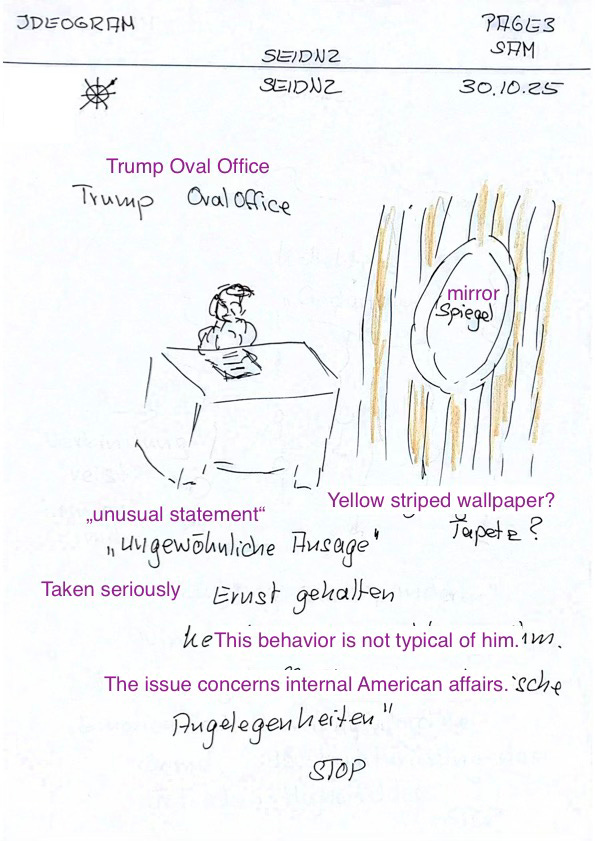 JDEOGRAM
PAGE3
SAM
SEIDN2
SEIDN2
30.10.25
Trump Oval Office
Trump Oval Office
mirror
Spiegel
Yellow striped wallpaper?
Tapete?
„unusual statement“
„ungewöhnliche Aussage"
Taken seriously
Ernst gehalten
This behavior is not typical of him.
The issue concerns internal American affairs.
Angelegenheiten"
STOP